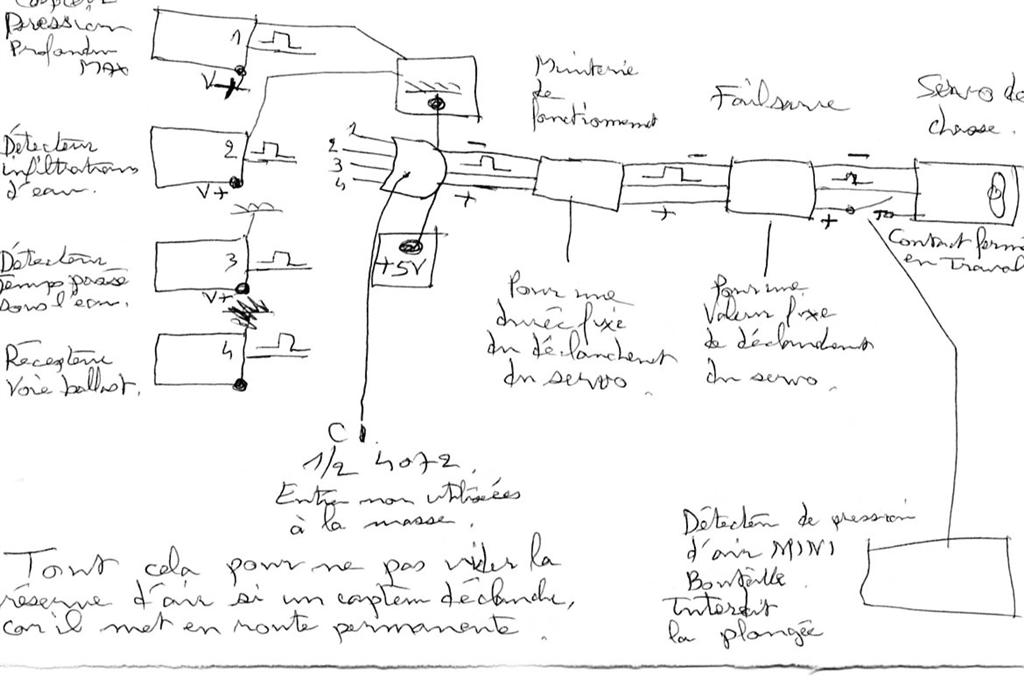 Capteur
Pression
Profondeur
MAX
1
V+
Détecteur
infiltrations
d'eau.
2
V+
Détecteur
Temps passé
sous l'eau.
3
V+
Récepteur
Voie ballast.
4
1
2
3
4
-
+
+5V
C
1/2 4072.
Entrée non utilisées
à la masse.
Minterie
de
fonctionnement
-
+
Pour une
durée fixe
du déclanchement
du servo.
Failsave
-
+
Pour une
Valeur fixe
de déclanchement
du servo.
Servo de
chasse.
Contact fermé
en Travail
Détecteur de pression
d'air MINI
Bouteille.
Interdit
la plongée
Tout cela pour ne pas vider la
réserve d'air si un capteur déclanche,
car il met en route permanente.